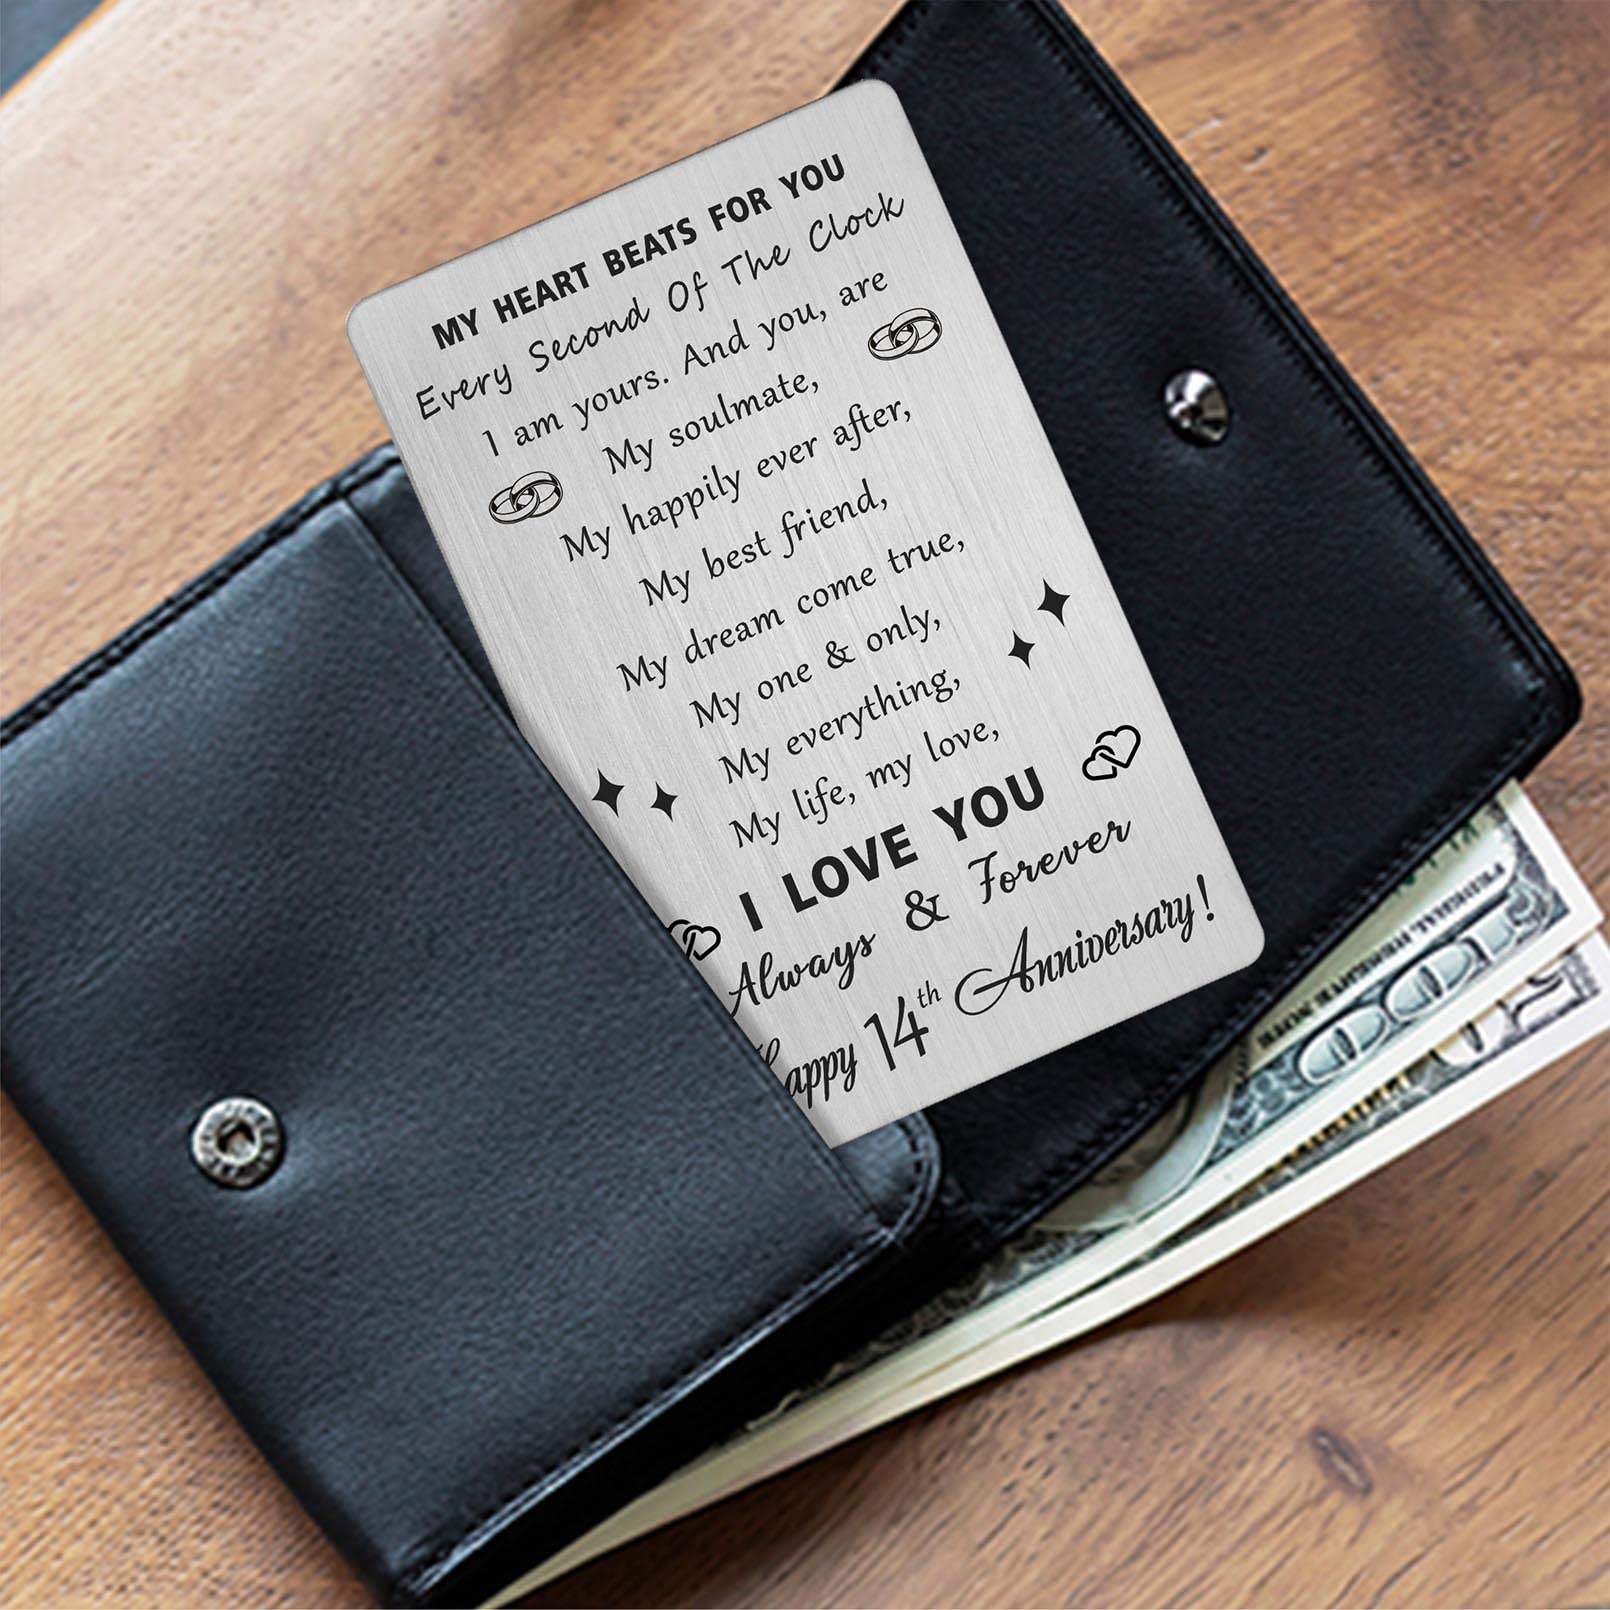 MY HEART BEATS FOR YOU
Every Second Of The Clock
I am yours. And you, are
My soulmate,
My happily ever after,
My best friend,
My dream come true,
My one & only,
My everything,
My life, my love,
I LOVE YOU
Always & Forever
Happy 14th Anniversary!
100